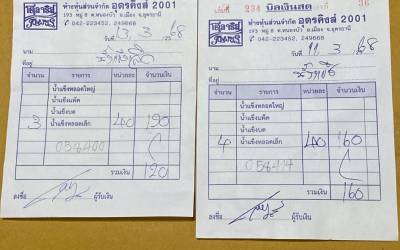 ห้างหุ้นส่วนจำกัด อุดรคิงส์ 2001
193 หมู่ 6 ต.หนองบัว อ.เมือง จ.อุดรธานี
042-223452, 249668
13 / 3 / 68
นาม
จำนวน รายการ หน่วยละ จำนวนเงิน
น้ำแข็งหลอดใหญ่
น้ำแข็งแพ็ค
น้ำแข็งบด
3 น้ำแข็งหลอดเล็ก 40
รวมเงิน 120
ลงชื่อ ผู้รับเงิน
เล่มที่ 234 บิลเงินสด 36
ห้างหุ้นส่วนจำกัด อุดรคิงส์ 2001
193 หมู่ 6 ต.หนองบัว อ.เมือง จ.อุดรธานี
042-223452, 249668
วันที่ 11 / 3 / 68
นาม
จำนวน รายการ หน่วยละ จำนวนเงิน
น้ำแข็งหลอดใหญ่
น้ำแข็งแพ็ค
น้ำแข็งบด
4 น้ำแข็งหลอดเล็ก 40 160
รวมเงิน 160
ลงชื่อ ผู้รับเงิน